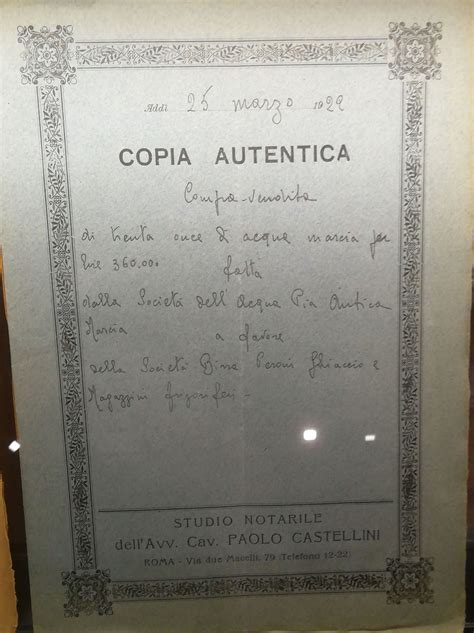 Addì 25 marzo 1929
COPIA AUTENTICA
Compra-Vendita
di trenta once d'acqua marcia per
lire 360.000 fatta
dalla Società dell'Acqua Pia Antica
Marcia a favore
della Società Birra Peroni Ghiaccio e
Magazzini frigoriferi -
STUDIO NOTARILE
dell'Avv. Cav. PAOLO CASTELLINI
ROMA - Via due Macelli, 79 (Telefono 12-22)